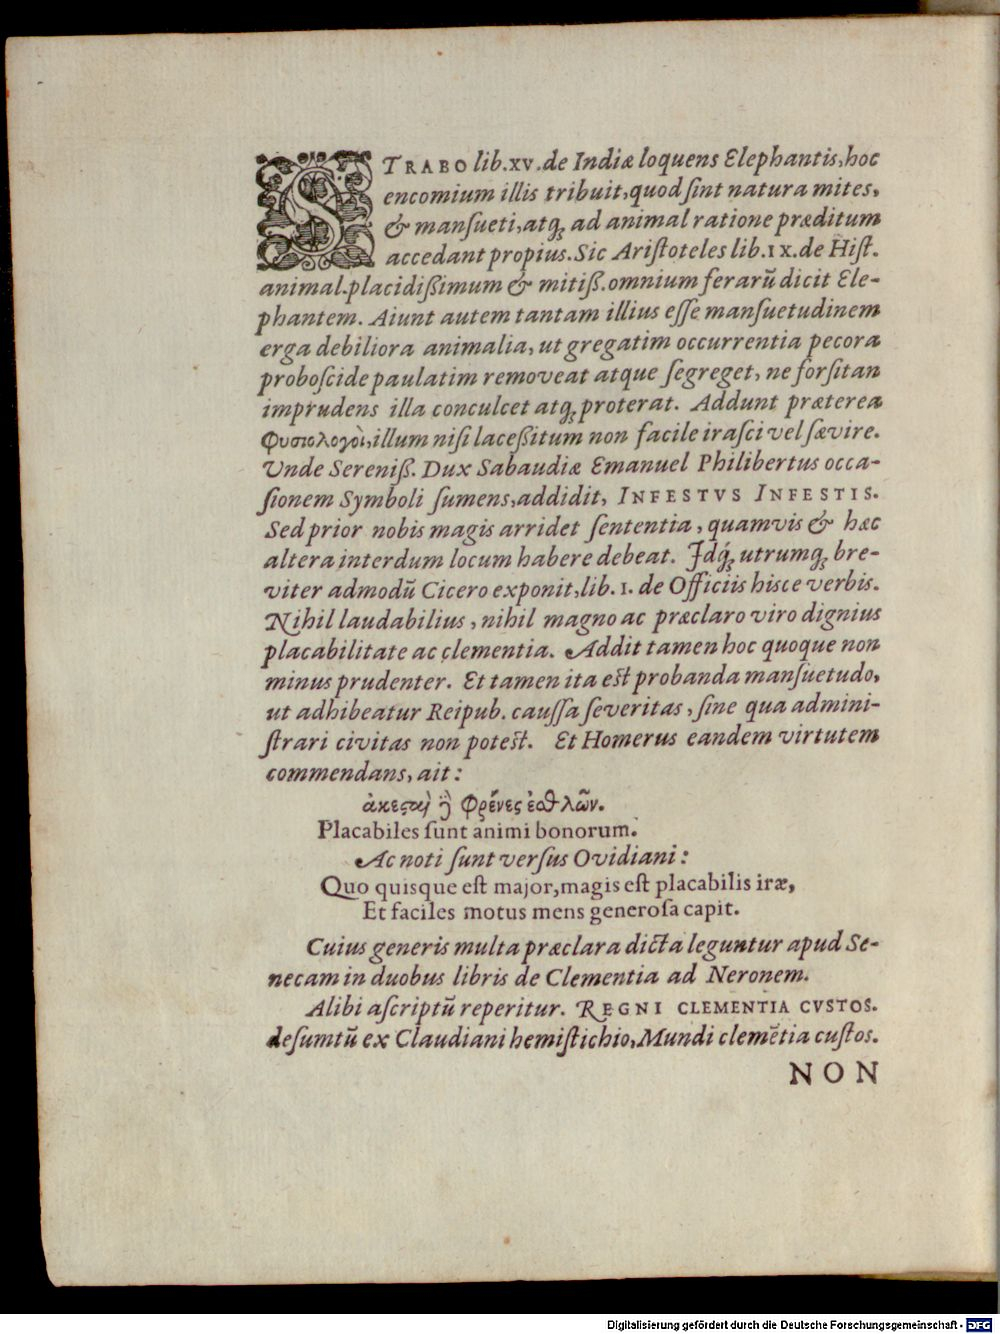 STRABO lib.XV.de Indiæ loquens Elephantis,hoc
encomium illis tribuit,quod ſint natura mites,
& manſueti,atq́; ad animal ratione præditum
accedant propius.Sic Ariſtoteles lib.IX.de Hiſt.
animal.placidißimum & mitiß.omnium ferarũ dicit Ele-
phantem. Aiunt autem tantam illius eſſe manſuetudinem
erga debiliora animalia, ut gregatim occurrentia pecora
proboſcide paulatim removeat atque ſegreget, ne forſitan
imprudens illa conculcet atq́; proterat. Addunt præterea
φυσιολογοὶ,illum niſi laceßitum non facile iraſci vel ſævire.
Unde Sereniß. Dux Sabaudiæ Emanuel Philibertus occa-
ſionem Symboli ſumens,addidit, INFESTVS INFESTIS.
Sed prior nobis magis arridet ſententia, quamvis & hæc
altera interdum locum habere debeat. Idq́; utrumq; bre-
viter admodũ Cicero exponit,lib.1. de Officiis hisce verbis.
Nihil laudabilius, nihil magno ac præclaro viro dignius
placabilitate ac clementia. Addit tamen hoc quoque non
minus prudenter. Et tamen ita eſt probanda manſuetudo,
ut adhibeatur Reipub. cauſſa ſeveritas, ſine qua admini-
ſtrari civitas non poteſt. Et Homerus eandem virtutem
commendans, ait:
ἀκεϛαὶ ϟ̀ φρένες ἐσθλῶν.
Placabiles ſunt animi bonorum.
Ac noti ſunt verſus Ovidiani:
Quo quisque eſt major,magis eſt placabilis iræ,
Et faciles motus mens generoſa capit.
Cuius generis multa præclara dicta leguntur apud Se-
necam in duobus libris de Clementia ad Neronem.
Alibi aſcriptũ reperitur. REGNI CLEMENTIA CVSTOS.
deſumtũ ex Claudiani hemiſtichio,Mundi clemẽtia cuſtos.
NON
Digitalisierung gefördert durch die Deutsche Forschungsgemeinschaft - DFG